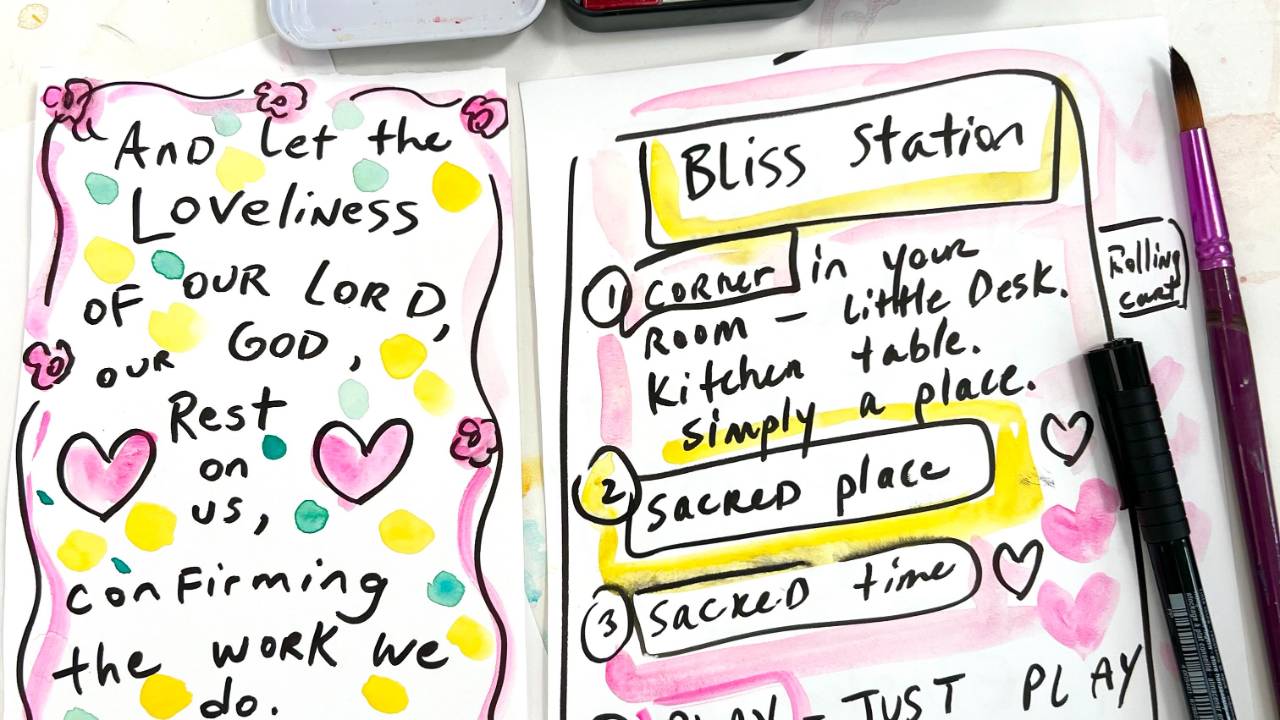 And Let the
Loveliness
OF OUR LORD,
OUR GOD,
Rest
on
us,
confirming
the work we
do.
Bliss Station
1 corner in your
Room - Little Desk.
Kitchen table.
simply a place.
2 sacred place
3 sacred time
PLAY - JUST PLAY
Rolling
cart